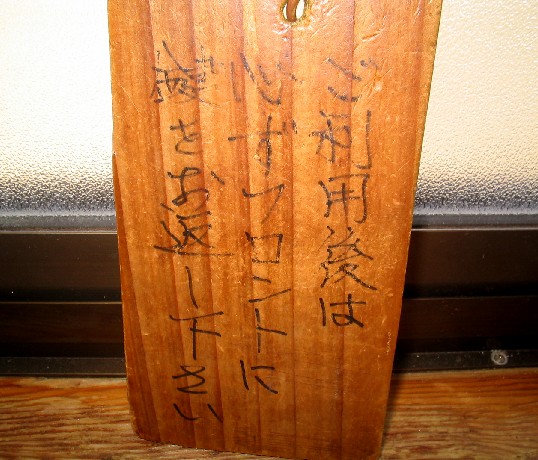 ご利用後は
必ずフロントに
鍵をお返し下さい